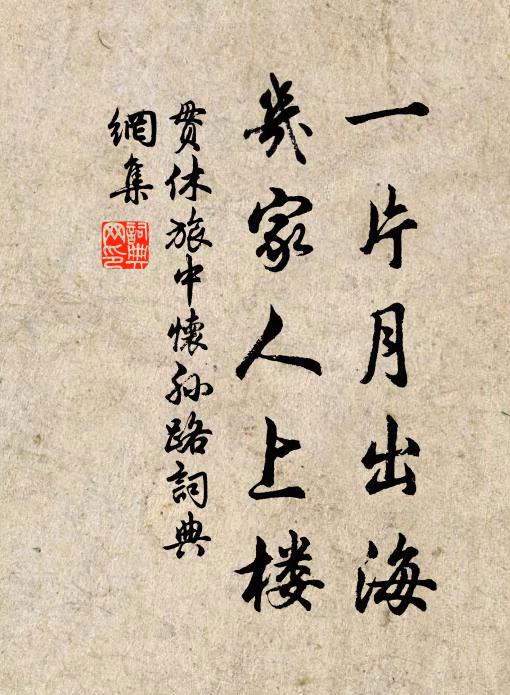 一片月出海
幾家人上楼
貫休旅中懷孙路詞典
網集
詞典
网印